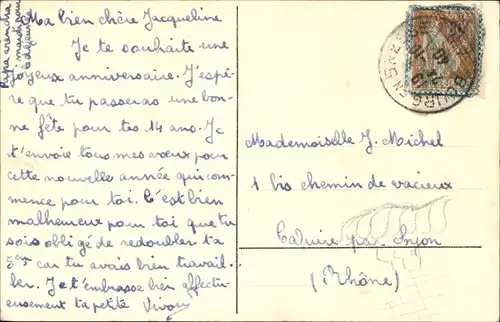 Ma bien chère Jacqueline
Je te souhaite une
joyeux anniversaire. J'espè-
re que tu passeras une bon-
ne fête pour tes 14 ans. Je
t'envoie tous mes vœux pour
cette nouvelle année qui com-
mence pour toi. C'est bien
malheureux pour toi que tu
sois obligé de redoubler ta
5em car tu avais bien travail-
ler. Je t'embrasse bien affectu-
eusement ta petite
Papa viendra
Mademoiselle J. Michel
1 bis chemin de vacieux
Caluire par Lyon
(Rhône)